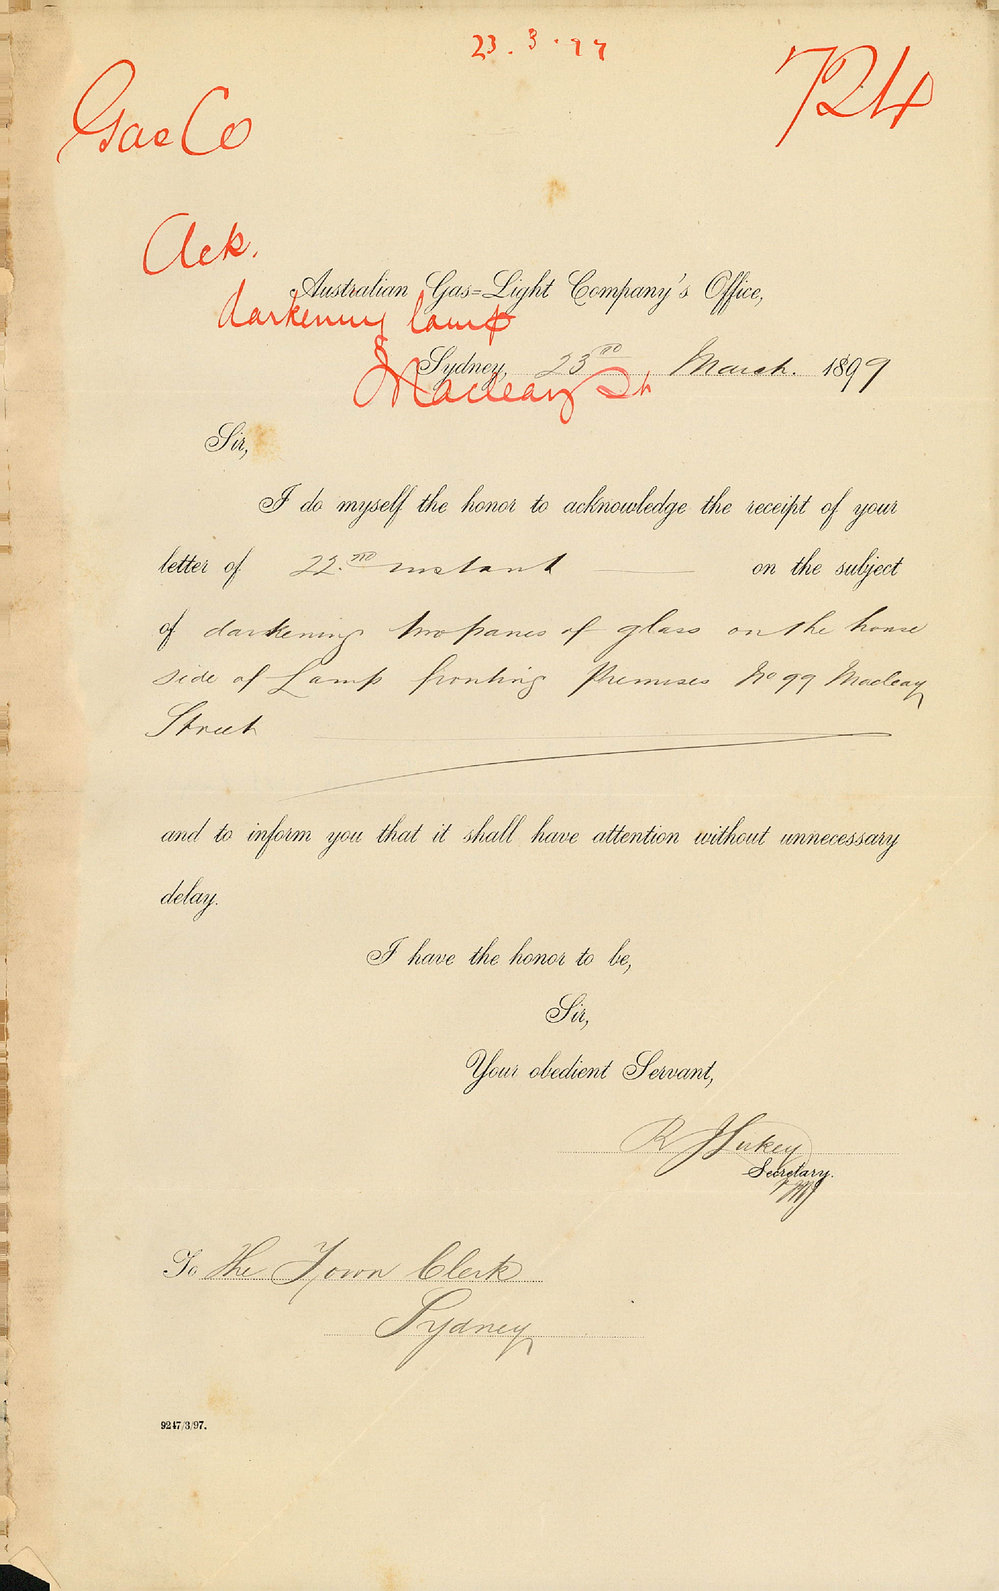 23.3.97
Gas Co
724
Ack.
Australian Gas-Light Company's Office,
darkening lamp
Sydney, 23rd March. 1899
Macleay St
Sir,
I do myself the honor to acknowledge the receipt of your
letter of 22.nd instant on the subject
of darkening two panes of glass on the house
side of Lamp fronting Premises No 99 Macleay
Street
and to inform you that it shall have attention without unnecessary
delay.
I have the honor to be,
Sir,
Your obedient Servant,
R J Lukey
Secretary.
To The Town Clerk
Sydney
9247/3/97.